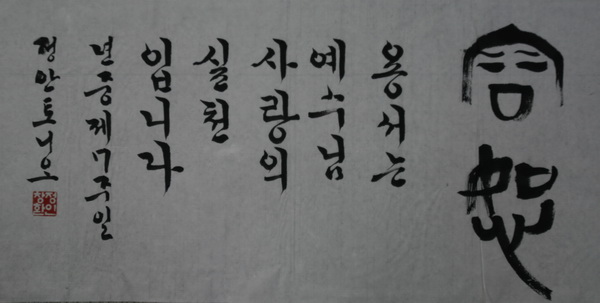 容恕
용서는
예수님
사랑의
실천
입니다
년중제7주일
정안토니오